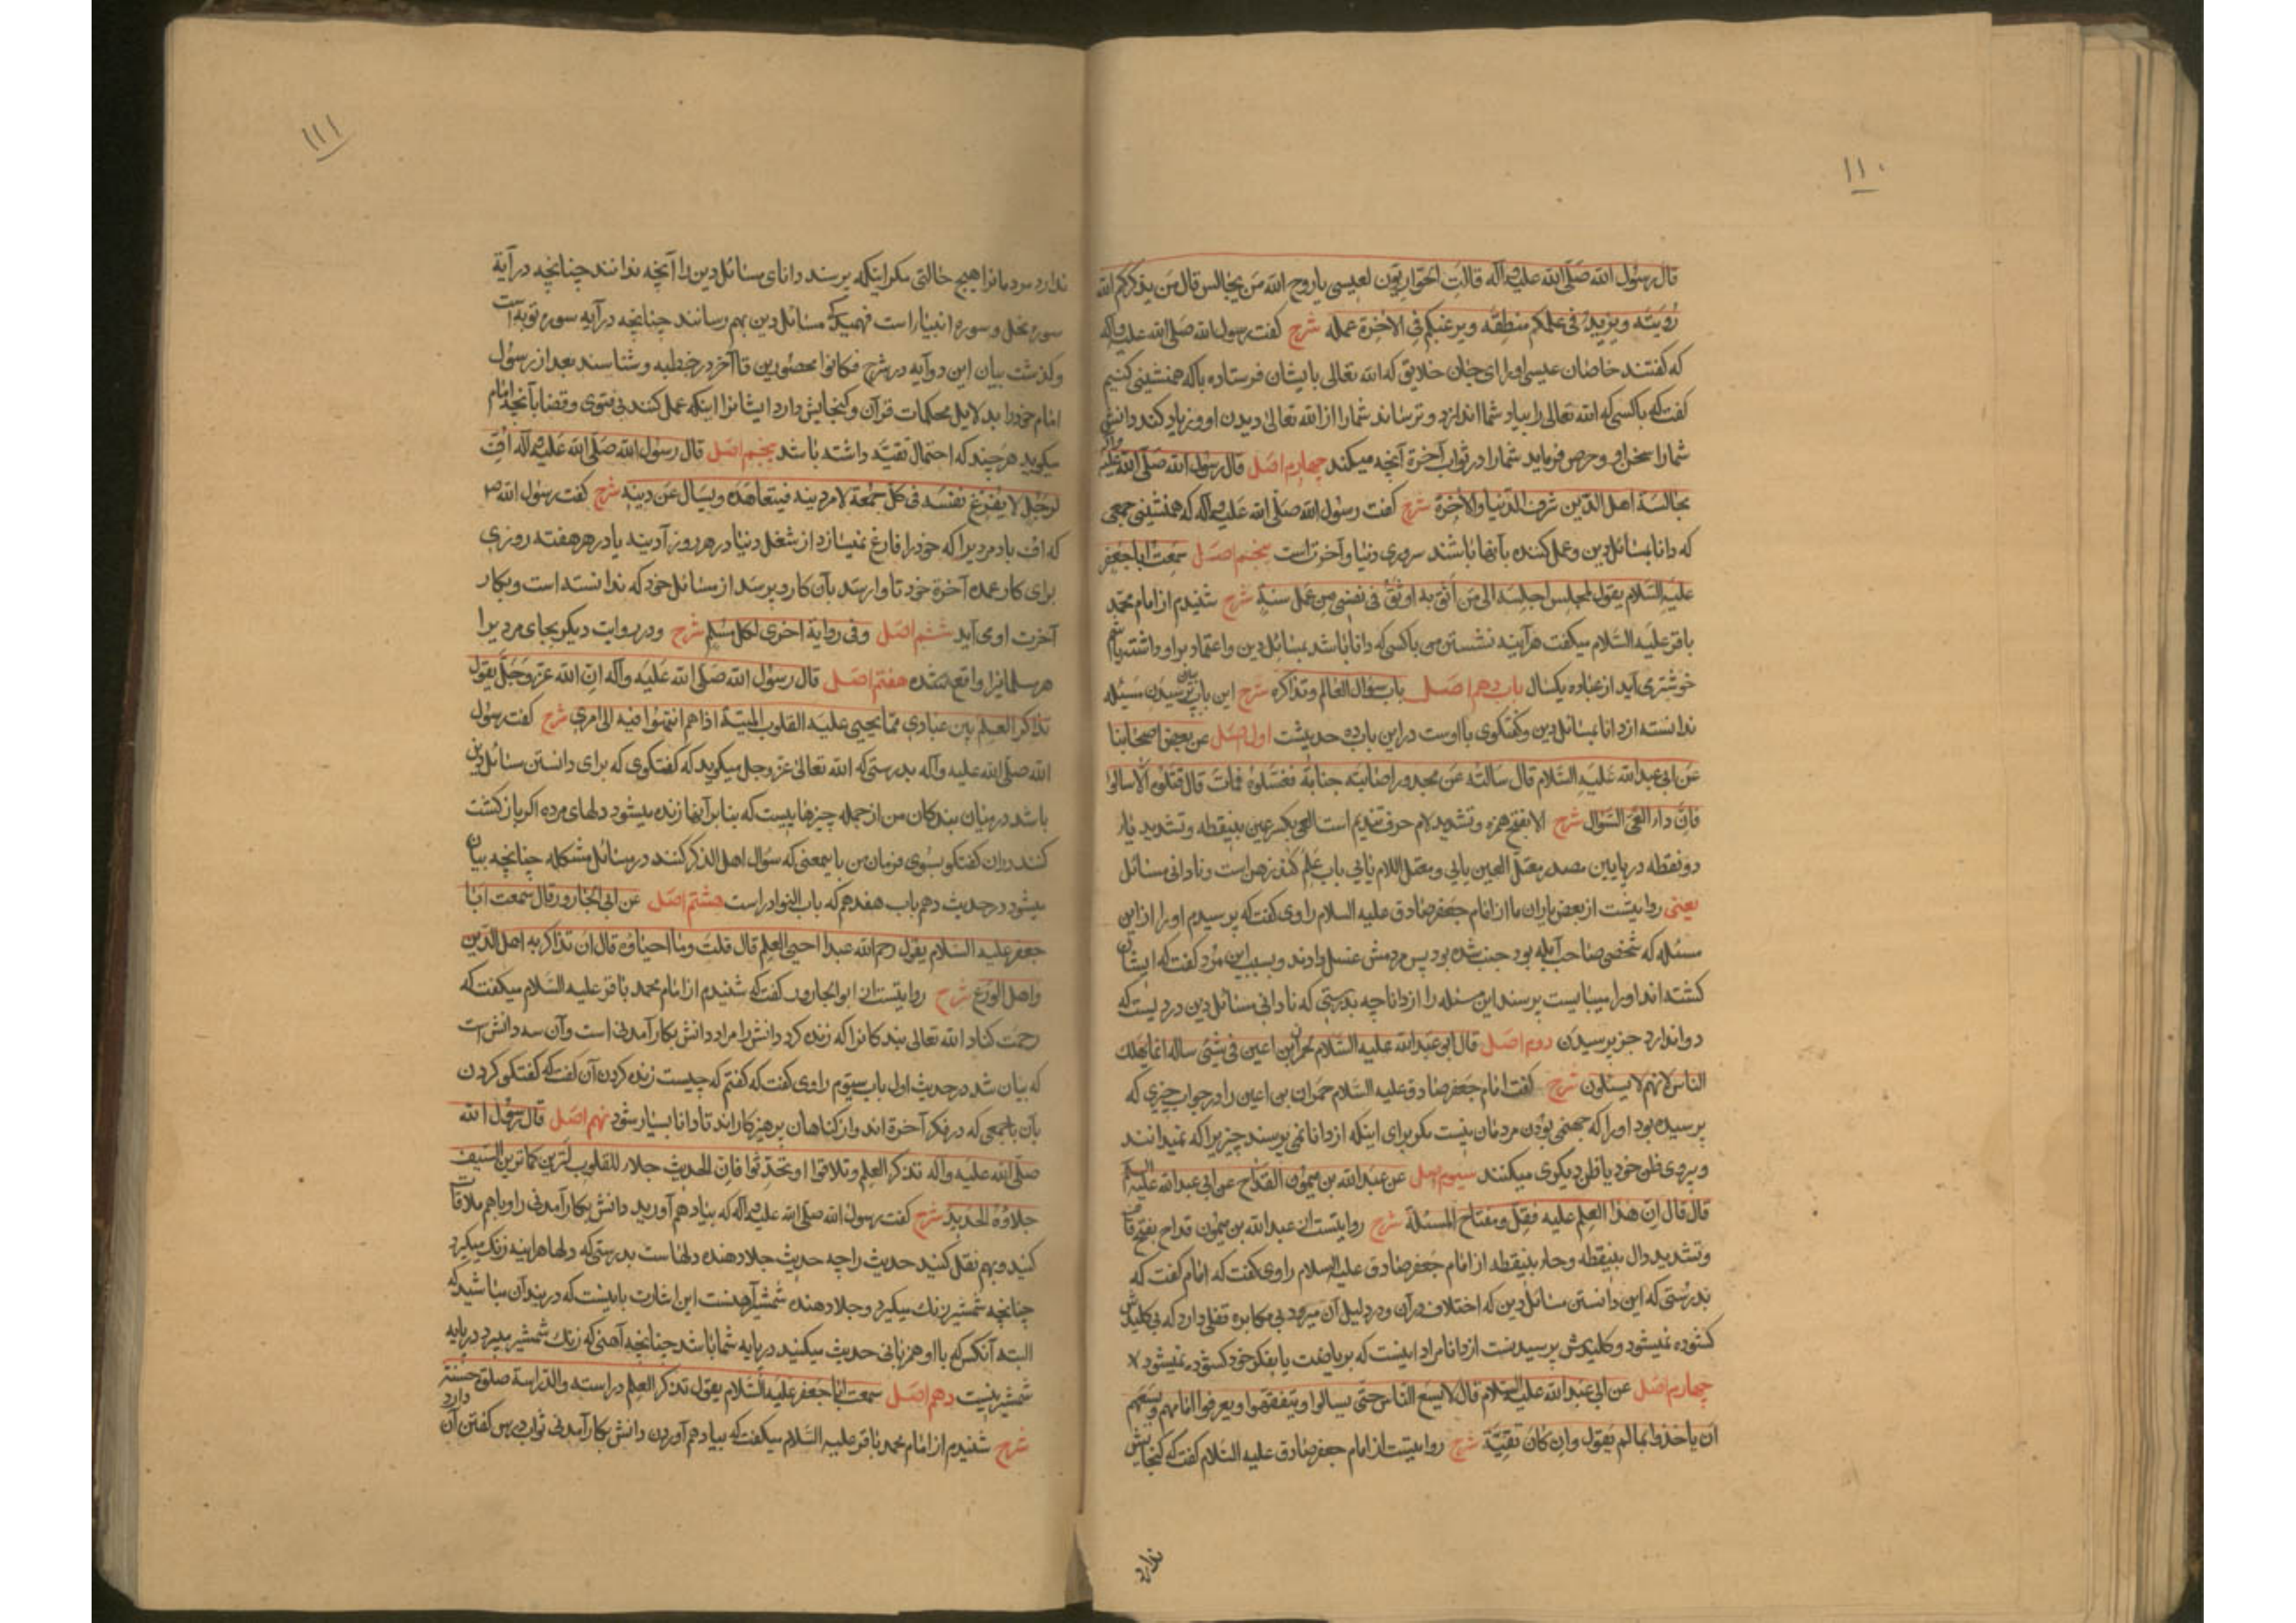 ١١٠
قال رسول الله صلّى الله عليه وآله قالت الحواريّون لعيسى ياروح الله من نجالس قال من يذكّركم الله
رؤيته ويزيد فى علمكم منطقه ويرغبكم فى الآخرة عمله شرح گفت رسول الله صلّى الله عليه وآله
که گفتند خاصان عیسی او را ای جان خلایق که الله تعالی بایشان فرستاده باکه همنشینی کنیم
گفت که باکسی که الله تعالی را بیاد شما اندازد و ترساند شما را از الله تعالی دیدن او و زیاد کند دانش
شما را سخن او و حرص فرماید شما را در ثواب آخرة آنچه میکند چهارم اصل قال رسول الله صلّى الله عليه وآله
مجالسة اهل الدّين شرف الدّنيا والآخرة شرح گفت رسول الله صلّى الله عليه وآله که همنشینی جمعی
که دانا بمسائل دین و عمل کننده بآنها باشند سروری دنیا و آخرتست پنجم اصل سمعت اباجعفر
عليه السّلام يقول لمجلس اجلسه الى من اثق به اوثق فى نفسى من عمل سنة شرح شنیدم از امام محمّد
باقر علیه السّلام میگفت هرآینه نشستن من باکسی که دانا باشد بمسائل دین و اعتماد براو داشته باشم
خوشتر می آید از عباده یکسال باب دهم اصل باب سؤال العالم وتذاکره شرح این باب بیان پرسیدن مسئله
ندانسته از دانا بمسائل دین و گفتگوی با اوست در این باب ده حدیثست اول اصل عن بعض اصحابنا
عن ابى عبدالله عليه السّلام قال سالته عن مجدور اصابته جنابة فغسّلوه فمات قال قتلوه الّا سالوا
فانّ دواء العىّ السّؤال شرح الا بفتح همزه و تشدید لام حرف تندیم است العی بکسر عین بینقطه و تشدید یاء
دونقطه در پایین مصدر معتل العین یایی و معتل اللام یایی باب علم کند ذهن است و نادانی مسائل
یعنی روایتست از بعض یاران ما از امام جعفر صادق علیه السلام راوی گفت که پرسیدم او را از این
مسئله که شخصی صاحب آبله بود جنب شده بود پس مردمش غسل دادند و بسبب این مرد گفت که ایشان
کشته اند او را میبایست پرسند این مسئله را از دانا چه بدرستی که نادانی مسائل دین دردیست که
دوا ندارد جز پرسیدن دوم اصل قال ابو عبدالله عليه السّلام لحمران بن اعين فى شىء ساله انما يهلك
الناس لانهم لا يسئلون شرح گفت امام جعفر صادق علیه السّلام حمران بن اعین را در جواب چیزی که
پرسیده بود او را که جهنمی بودن مردمان نیست مکر برای اینکه از دانا نمی پرسند چیزیرا که نمیدانند
و پیروی ظن خود یا ظن دیگری میکنند سیوم اصل عن عبدالله بن ميمون القدّاح عن ابى عبدالله عليه السلم
قال قال انّ هذا العلم عليه قفل ومفتاح المسئلة شرح روایتست از عبدالله بن میمون قداح بفتح قاف
و تشدید دال بینقطه و حاء بینقطه از امام جعفر صادق علیه السلام راوی گفت که امام گفت که
بدرستی که این دانستن مسائل دین که اختلاف در آن و در دلیل آن میرود بی مکابره قفلی دارد که بی کلیدش
کشوده نمیشود و کلیدش پرسیدنست از دانا مراد اینست که بریاضت یا بفکر خود کشوده نمیشود
چهارم اصل عن ابى عبدالله عليه السلام قال لا يسع النّاس حتّى يسالوا ويتفقهوا ويعرفوا امامهم ويسعهم
ان ياخذوا بما لم يقول وان كان تقيّة شرح روایتست از امام جعفر صادق علیه السّلام گفت که گنجایش
ندارد
١١١
ندارد مردمانرا هیچ حالتی مکر اینکه پرسند دانای مسائل دین را آنچه ندانند چنانچه در آیة
سوره نحل و سوره انبیا راست فهمیدگی مسائل دین بهم رسانند چنانچه در آیه سوره توبه است
و گذشت بیان این دو آیه در شرح فکانوا محصورین تا آخر در خطبه و شناسند بعد از رسول
امام خود را بدلایل محکمات قرآن و گنجایش دارد ایشانرا اینکه عمل کنند در فتوی و قضا بآنچه امام
میگوید هرچند که احتمال تقیّه داشته باشد پنجم اصل قال رسول الله صلّى الله عليه وآله افّ
لرجل لا يفرغ نفسه فى كلّ جمعة لامر دينه فيتعاهده ويسال عن دينه شرح گفت رسول الله ص
که اف باد مردیرا که خود را فارغ نمیسازد از شغل دنیا در هر روز آدینه یا در هر هفته روزی
برای کار عمده آخرة خود تا وارسد بآن کار و پرسد از مسائل خود که ندانسته است و بکار
آخرت او می آید ششم اصل وفى رواية اخرى لكلّ مسلم شرح و در روایت دیگر بجای مردیرا
هر مسلمانیرا واقع شده هفتم اصل قال رسول الله صلّى الله عليه وآله انّ الله عزّ وجلّ يقول
تذاكر العلم بين عبادى ممّا يحيى عليه القلوب الميتة اذا هم انتهوا فيه الى امرى شرح گفت رسول
الله صلّى الله علیه وآله بدرستی که الله تعالی عزّ وجل میگوید که گفتگوی که برای دانستن مسائل دین
باشد در میان بندکان من از جمله چیزهاییست که بنابر آنها زنده میشود دلهای مرده اکر بازکشت
کنند در آن گفتگو بسوی فرمان من باینمعنی که سؤال اهل الذکر کنند در مسائل مشکله چنانچه بیان
میشود در حدیث دهم باب هفدهم که باب النوادر است هشتم اصل عن ابى الجارود قال سمعت ابا
جعفر عليه السّلام يقول رحم الله عبدا احيى العلم قال قلت وما احياؤه قال ان تذاكر به اهل الدّين
واهل الورع شرح روایتست از ابوالجارود گفت که شنیدم از امام محمد باقر علیه السّلام میگفت که
رحمت کناد الله تعالی بندکانرا که زنده کرد دانش را مراد دانش بکار آمدنی است و آن سه دانش است
که بیان شد در حدیث اول باب سیّوم راوی گفت که گفتم که چیست زنده کردن آن گفت که گفتگو کردن
بآن باجمعی که در فکر آخرة اند و از کناهان پرهیزکاراند تا دانا بسیار شود نهم اصل قال رسول الله
صلّى الله عليه وآله تذكر العلم وتلاقوا او تحدّثوا فانّ الحديث جلاء للقلوب لترين كما ترين السّيف
جلاؤه الحديد شرح گفت رسول الله صلّى الله علیه وآله که بیاد هم آورید دانش بکار آمدنی را و باهم ملاقات
کنید و بهم نقل کنید حدیث را چه حدیث جلا دهنده دلهاست بدرستی که دلها هرآینه زنک میگیرد
چنانچه شمشیر زنک میگیرد و جلا دهنده شمشیر آهنست این اشارت باینست که در بند آن مباشید که
البته آنکس که با او همزبانی حدیث میکنید در پایه شما باشد چنانچه آهنی که زنک شمشیر میبرد در پایه
شمشیر نیست دهم اصل سمعت اباجعفر عليه السّلام يقول تذكر العلم دراسته والدّراسة صلوة حسنة
شرح شنیدم از امام محمد باقر علیه السّلام میگفت که بیاد هم آوردن دانش بکار آمدنی ثواب درس گفتن آن دارد